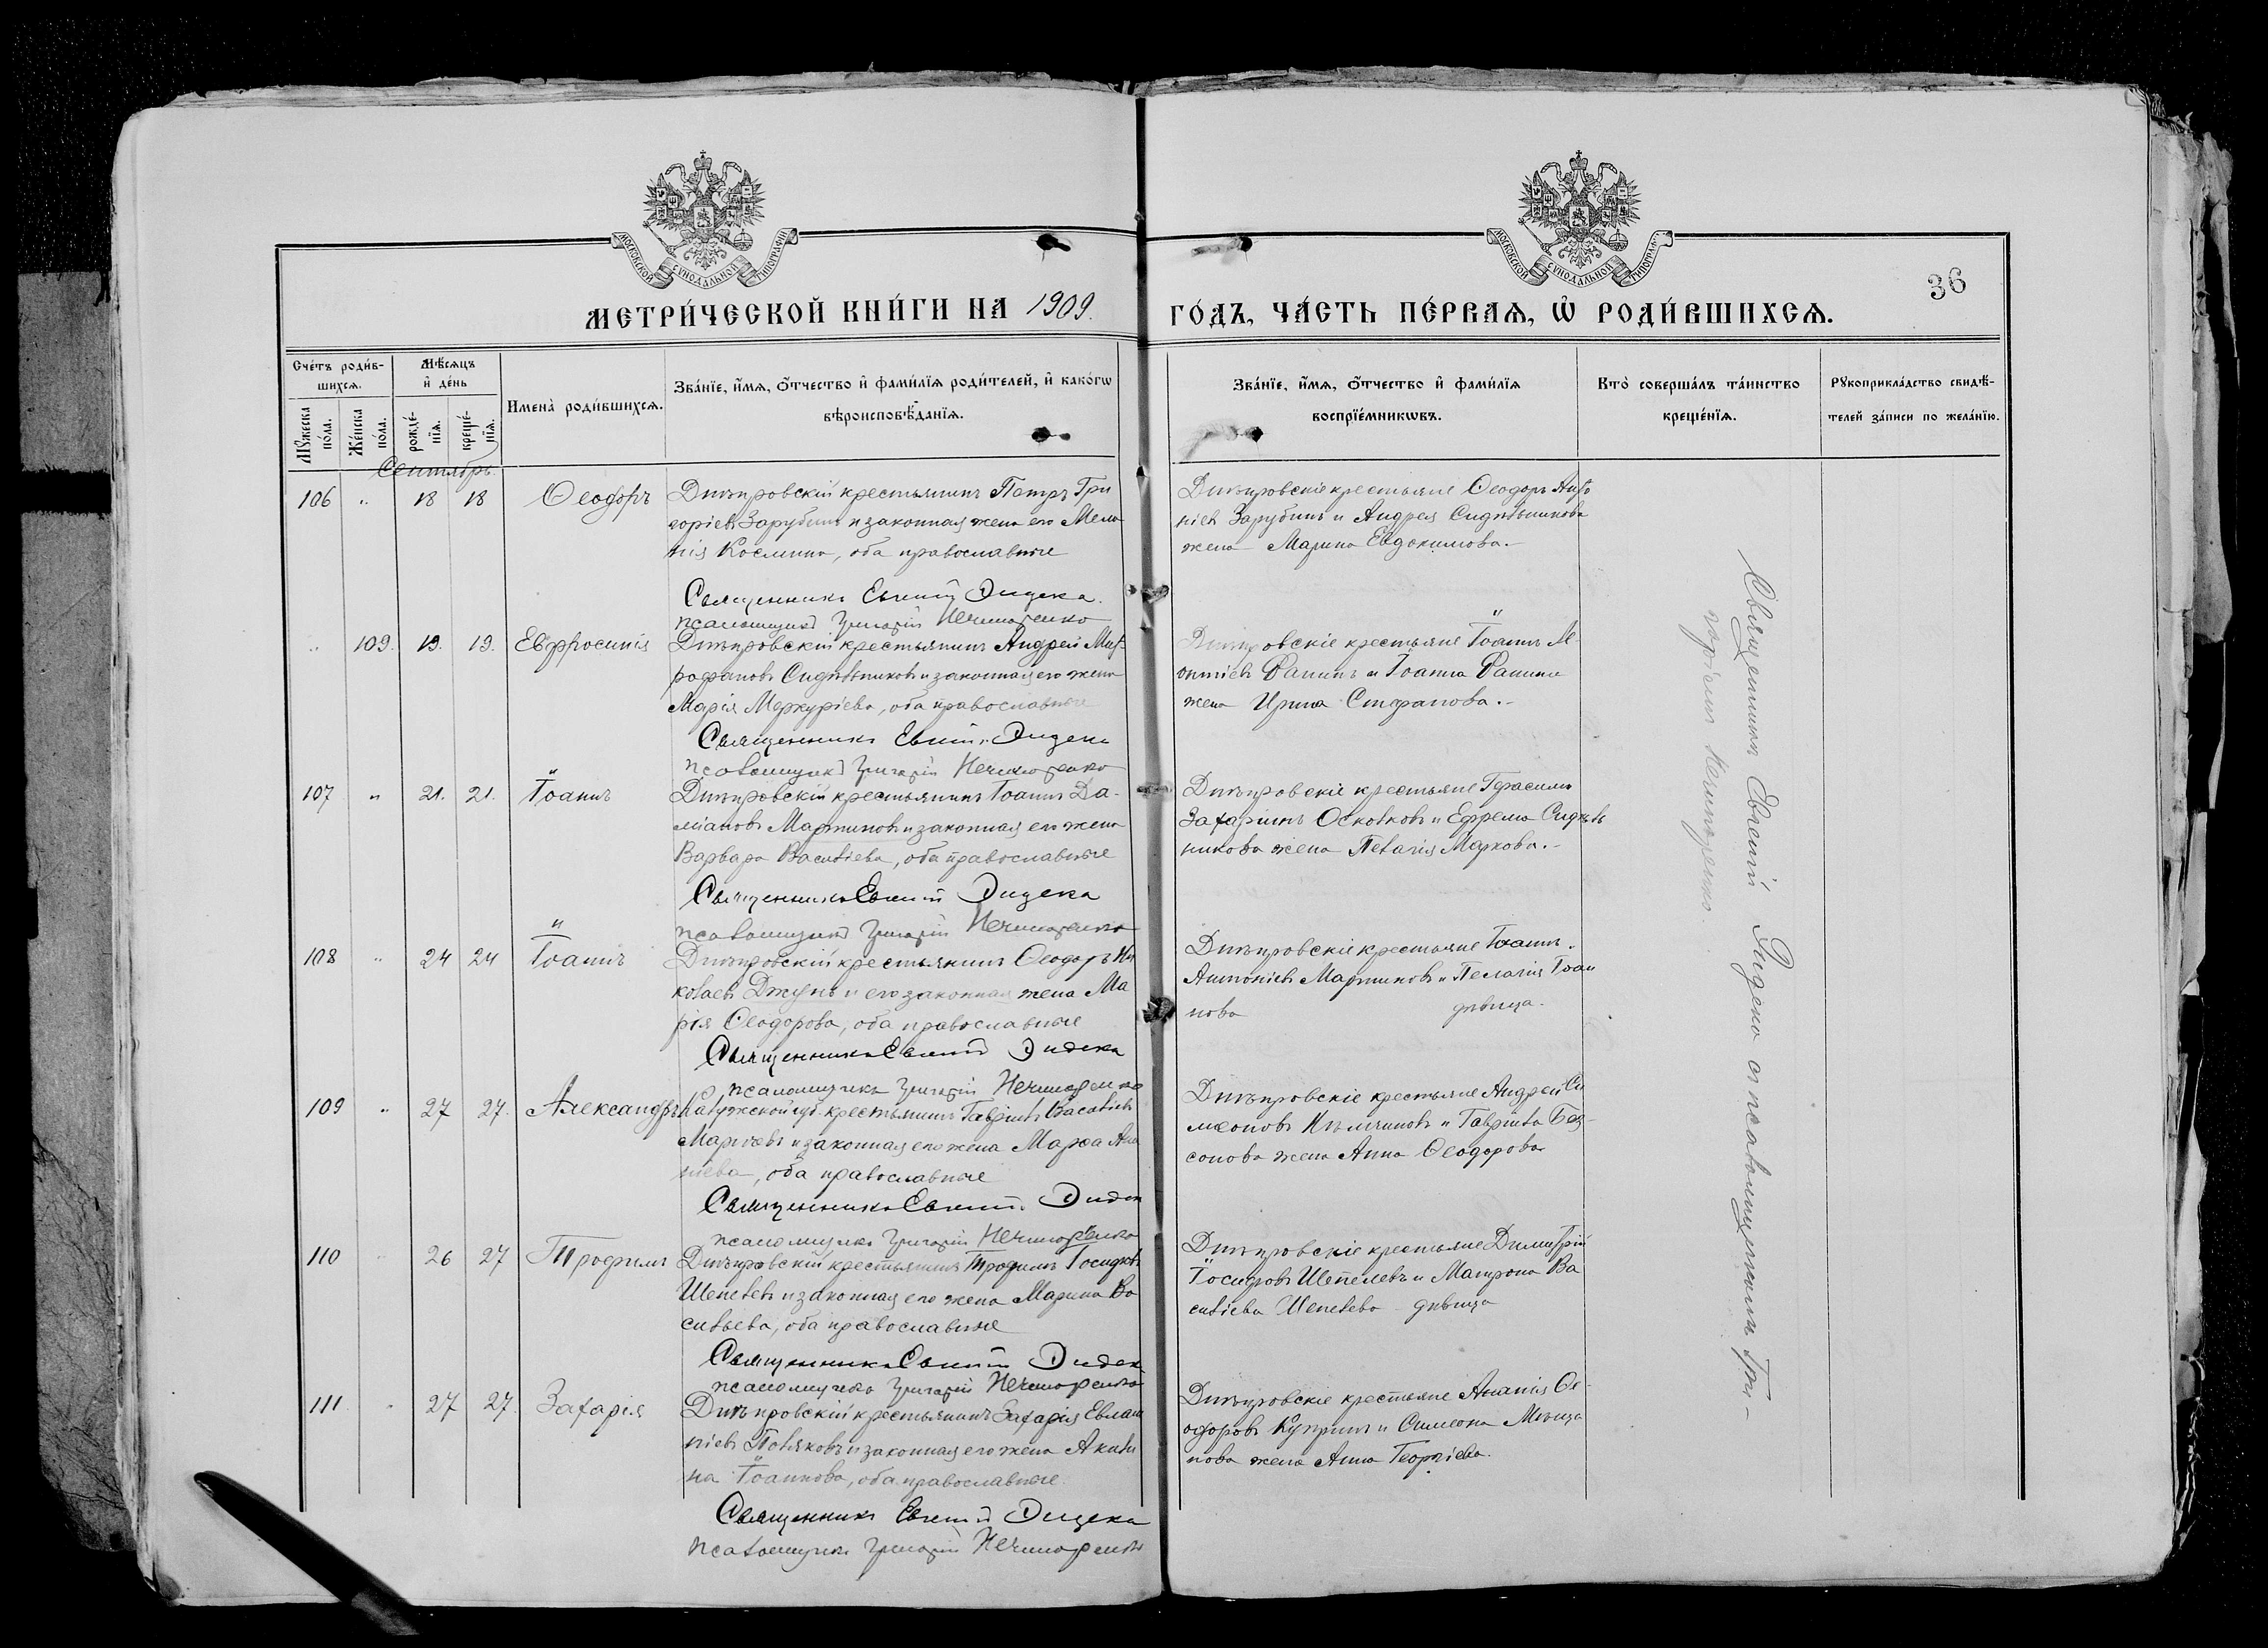 МОСКОВСКОЙ СѴНОДАЛЬНОЙ ТИПОГРАФІИ
МОСКОВСКОЙ СѴНОДАЛЬНОЙ ТИПОГРАФІИ
36
МЕТРИ́ЧЕСКОЙ КНИ́ГИ НА 1909. ГО́ДЪ, ЧА́СТЬ ПЕ́РВАѦ, Ѡ҆ РОДИ́ВШИХСѦ.
Сче́тъ роди́в-
шихсѧ.
Мꙋжеска по́ла.
Же́нска по́ла.
Мѣ́сѧцъ
и҆ де́нь
рожде́-
нїѧ.
креще́-
нїѧ.
Имена̀ роди́вшихсѧ.
Зва́нїе, и҆́мѧ, ѻ҆́тчество и҆ фами́лїѧ роди́телей, и҆ како́гѡ
вѣроисповѣ́данїѧ.
Зва́нїе, и҆́мѧ, ѻ҆́тчество и҆ фами́лїѧ
воспрїе́мникѡвъ.
Кто̀ соверша́лъ та́инство
креще́нїѧ.
Рꙋкоприкла́дство свидѣ́-
телей за́писи по жела́нїю.
Сентябрь.
106 " 18 18 Ѳеодоръ
Днѣпровскій крестьянинъ Петръ Гри
горіевъ Зарубинъ и законная жена его Мела
нія Космина, оба православные
Священникъ Евѳимій Дидека
псаломщикъ Григорій Нечипоренко
Днѣпровскіе крестьяне Ѳеодоръ
ніевъ Зарубинъ и Андрея Сидѣльникова
жена Марина Евдокимова.-
" 109. 19. 19. Евфросинія
Днѣпровскій крестьянинъ Андрей Мит
рофановъ Сидѣльниковъ и законная его жена
Марія Меркуріева, оба православные
Священникъ Евѳимій Дидека
псаломщикъ Григорій Нечипоренко
Днѣпровскіе крестьяне Іоаннъ Л
онтіевъ Фанинъ и Іоанна Фанина
жена Ирина Стефанова.-
107 " 21. 21. Іоаннъ
Днѣпровскій крестьянинъ Іоаннъ Да-
міановъ Мартиновъ и законная его жена
Варвара Василіева, оба православные
Священникъ Евѳимій Дидека
псаломщикъ Григорій Нечипоренко
Днѣпровскіе крестьяне Герасимъ
Захаріинъ Осколковъ и Ефрема Сидѣль
никова жена Пелагія Маркова.-
108 " 24 24 Іоаннъ
Днѣпровскій крестьянинъ Ѳеодоръ Ни
колаевъ Джунь и его законная жена Ма
рія Ѳеодорова, оба православные
Священникъ Евѳимій Дидека
псаломщикъ Григорій Нечипоренко
Днѣпровскіе крестьяне Іоаннъ
Антоніевъ Мартиновъ и Пелагія Іоан
нова дѣвица.
109 " 27 27. Александръ
Калужской губ. крестьянинъ Гавріилъ Василіевъ
Маричевъ и законная его жена Марѳа Ана
ніева, оба православные
Священникъ Евѳимій Дидек
псаломщикъ Григорій Нечипоренко
Днѣпровскіе крестьяне Андрей Си
меоновъ и Гавріила Без
сонова жена Анна Ѳеодорова
110 26 27 Трофимъ
Днѣпровскій крестьянинъ Трофимъ Іосифовъ
Шепелевъ и законная его жена Марина Ва
сильева, оба православные
Священникъ Евѳимій Дидек
псаломщикъ Григорій Нечипоренко
Днѣпровскіе крестьяне Димитрій
Іосифовъ Шепелевъ и Матрона Ва
силіева Шепелева дѣвица
111 27 27. Захарія
Днѣпровскій крестьянинъ Захарія Евлам
піевъ Поляковъ и законная его жена Акили
на Іоаннова, оба православные.
Священникъ Евѳимій Дидека
псаломщикъ Григорій Нечипоренко
Днѣпровскіе крестьяне Ананія Ѳе-
одоровъ Купринъ и Симеона
нова жена Анна Георгіева.
Священникъ Евѳимій Дидека съ псаломщикомъ Гри-
горіемъ Нечипоренко.